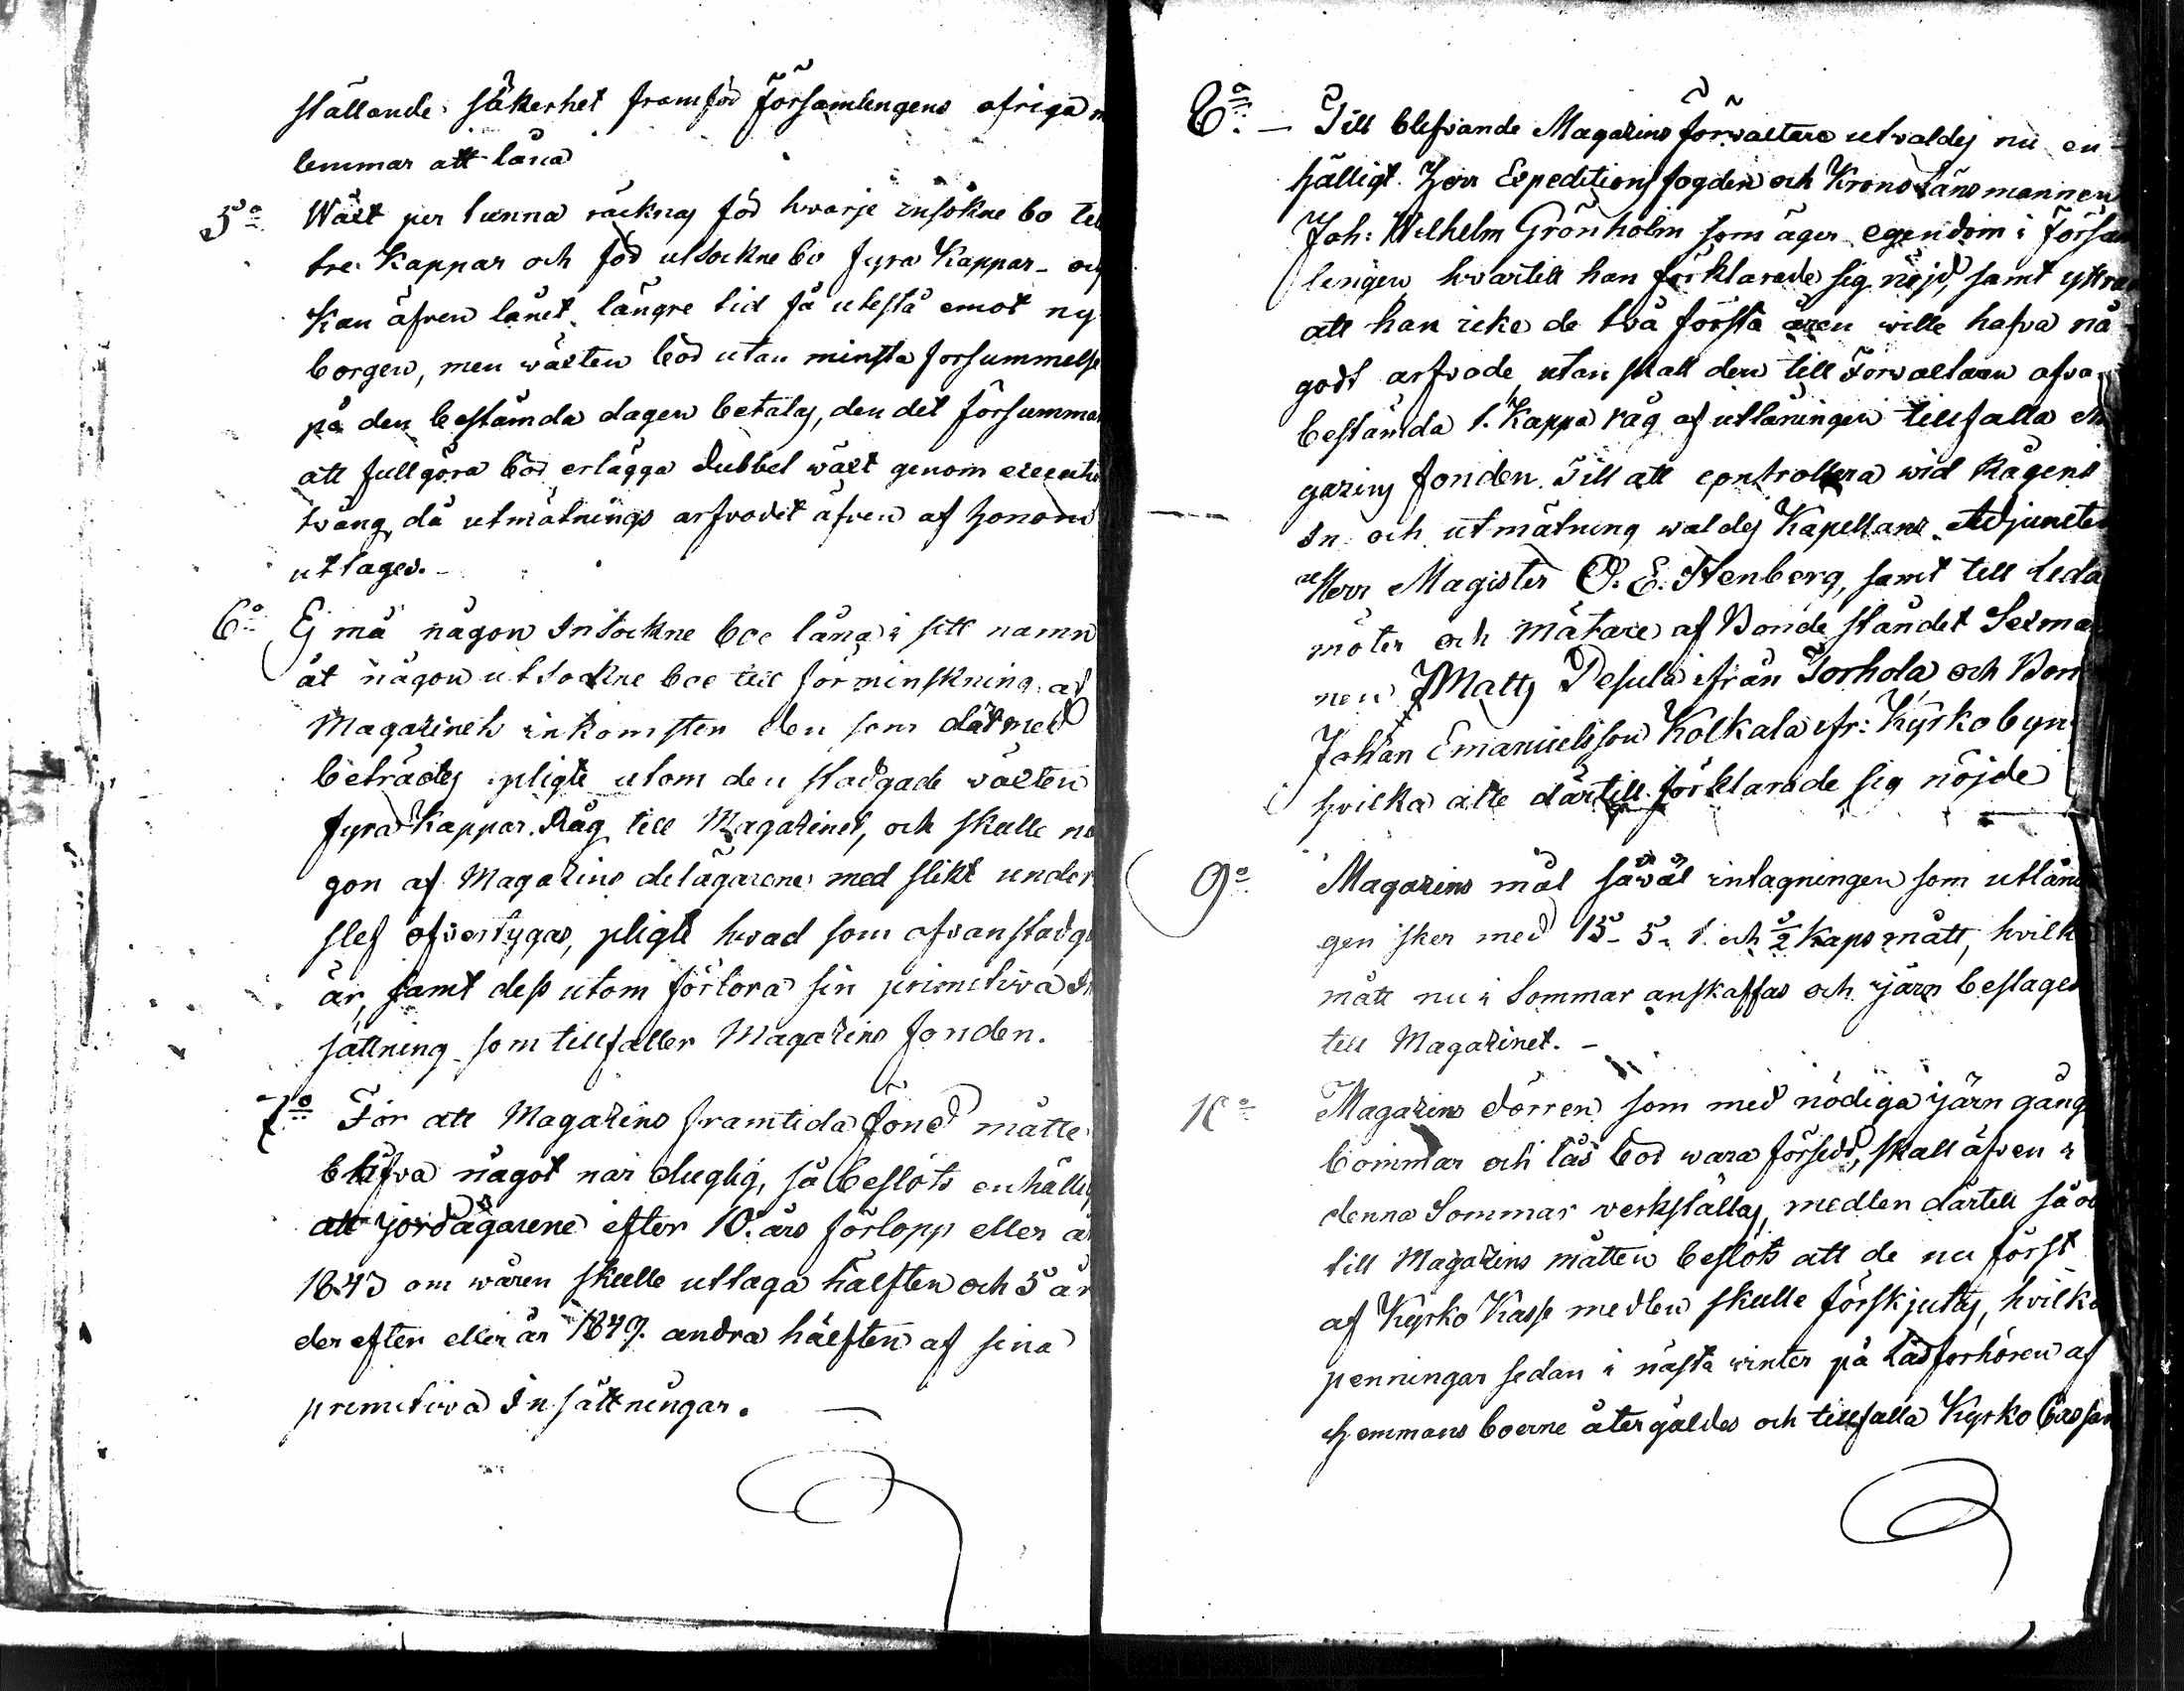 ställande säkerhet framför Församlingens öfriga
lemmar att låna
5:o Wäxt per tunna räcknas för hvarje insokne bo till
tre Kappar och för utsockne bo fyra Kappar och
kan äfven lånet längre tid få utestå emot ny
borgen, men wäxten bör utan minsta försummelse
på den bestämda dagen betalas, den det försummar
att fullgöra bör erlägga dubbel wäxt genom
tvång, då utmätnings arfvodet äfven af honom
uttages.
6:o Ej må någon Insockne boe låna i sitt namn
åt någon utsockne boe till förminskning af
Magazinets inkomster den som därmed
beträdes pligte utom den stadgade wäxten
fyra Kappar Råg till Magazinet, och skulle nå
gon af Magazins delägarene med slikt under
slef öfvertygas, pligte hvad som ofvanstadgt
är, samt dess utom förlora sin primitiva In
sättning som tillfaller Magazins fonden.
7:o För att Magazins framtida fond måtte
blifva något när duglig, så beslöts enhälligt
att jordägarene efter 10 års förlopp eller år
1843 om wåren skulle uttaga hälften och 5 år
derefter eller år 1849 andra hälften af sina
primitiva Insättningar.
8:o Till blifvande Magazins Förvaltare utvaldes nu en-
hälligt Herr Expeditions fogden och Krono Länsmannen
Joh: Wilhelm Grönholm som äger egendom i Försam
lingen hvartill han förklarade sig nöjd, samt yttrade
att han icke de två första åren wille hafva nå-
godt arfvode, utan skall den till Förvaltaren ofvan
bestämda 1. Kappa råg af utlåningen tillfalla Ma
gazins fonden. Till att controllera wid Rågens
in och utmätning waldes Kapellans Adjuncten
Herr Magister O. E. Stenberg, samt till Leda
möter och Mätare af Bonde ståndet Sexmän
nen Matts Pesula ifrån Torhola och Bon
Johan Emanuelsson Kolkala ifr: Kyrkobyn
hvilka alte därtill förklarade sig nöjde
9:o Magazins mål såwäl intagningen som utlånin
gen sker med 15- 5- 1. och ½ Kaps mått, hvilka
mått nu i Sommar anskaffas och järn beslages
till Magazinet. -
10:o Magazins dörren som med nödiga järn gång
bommar och lås bör wara försedd, skall äfven i
denna Sommar verkställas, medlen därtill så och
till Magazins måtten beslöts att de nu först
af Kyrko Kasse medlen skulle förskjutas, hvilka
penningar sedan i nästa winter på Läsförhören af
Hemmans boerne återgäldes och tillfalla Kyrko Cassan